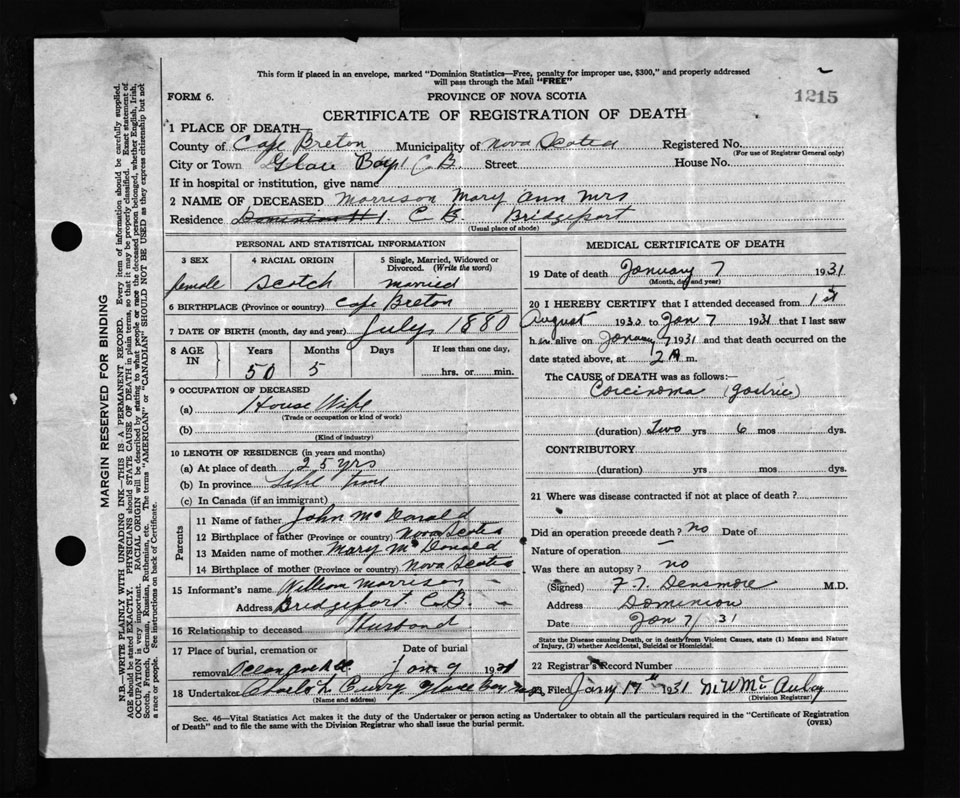 This form if placed in an envelope, marked "Dominion Statistics—Free, penalty for improper use, $300," and properly addressed
will pass through the Mail "FREE"
FORM 6.
PROVINCE OF NOVA SCOTIA
1215
CERTIFICATE OF REGISTRATION OF DEATH
1 PLACE OF DEATH—
County of Cape Breton Municipality of Nova Scotia Registered No.
(For use of Registrar General only)
City or Town Glace Bay C B Street House No.
If in hospital or institution, give name
2 NAME OF DECEASED Morrison Mary Ann Mrs
Residence Dominion #1 C B. Bridgeport
(Usual place of abode)
PERSONAL AND STATISTICAL INFORMATION
3 SEX 4 RACIAL ORIGIN 5 Single, Married, Widowed or Divorced. (Write the word)
female Scotch married
6 BIRTHPLACE (Province or country) Cape Breton
7 DATE OF BIRTH (month, day and year) July, 1880
8 AGE IN Years Months Days If less than one day,
50 5 hrs. or min.
9 OCCUPATION OF DECEASED
(a) House Wife
(Trade or occupation or kind of work)
(b)
(Kind of industry)
10 LENGTH OF RESIDENCE (in years and months)
(a) At place of death 25 yrs
(b) In province Life time
(c) In Canada (if an immigrant)
Parents
11 Name of father John McDonald
12 Birthplace of father (Province or country) Nova Scotia
13 Maiden name of mother Mary McDonald
14 Birthplace of mother (Province or country) Nova Scotia
15 Informant's name William Morrison
Address Bridgeport. C.B.
16 Relationship to deceased Husband
17 Place of burial, cremation or Date of burial
removal Jan 9 1931
18 Undertaker Curry Glace Bay
(Name and address)
MEDICAL CERTIFICATE OF DEATH
19 Date of death January 7 1931
(Month, day and year)
20 I HEREBY CERTIFY that I attended deceased from 1st
August 1930 to Jan 7 1931 that I last saw
her alive on January 7 1931 and that death occurred on the
date stated above, at 12 A m.
The CAUSE of DEATH was as follows:—
Carcinoma (gastric)
(duration) two yrs 6 mos dys.
CONTRIBUTORY
(duration) yrs mos dys.
21 Where was disease contracted if not at place of death?
Did an operation precede death? no Date of
Nature of operation —
Was there an autopsy? no
(Signed) F. T. Densmore M.D.
Address Dominion
Date Jan 7/31
State the Disease causing Death, or in death from Violent Causes, state (1) Means and Nature
of Injury, (2) whether Accidental, Suicidal or Homicidal.
22 Registrar's Record Number
Filed Jany 17th 1931 McAulay
(Division Registrar)
Sec. 46—Vital Statistics Act makes it the duty of the Undertaker or person acting as Undertaker to obtain all the particulars required in the "Certificate of Registration
of Death" and to file the same with the Division Registrar who shall issue the burial permit.
(OVER)
MARGIN RESERVED FOR BINDING
N.B.—WRITE PLAINLY WITH UNFADING INK—THIS IS A PERMANENT RECORD. Every item of information should be carefully supplied.
AGE should be stated EXACTLY. PHYSICIANS should STATE CAUSE OF DEATH in plain terms, so that it may be properly classified. Exact statement of
OCCUPATION is very important. RACIAL ORIGIN will be described by stating to what people or race the deceased person belonged, whether English, Irish,
Scotch, French, German, Russian, Ruthenian, etc. The terms "AMERICAN" or "CANADIAN" SHOULD NOT BE USED as they express citizenship but not
a race or people. See instructions on back of Certificate.